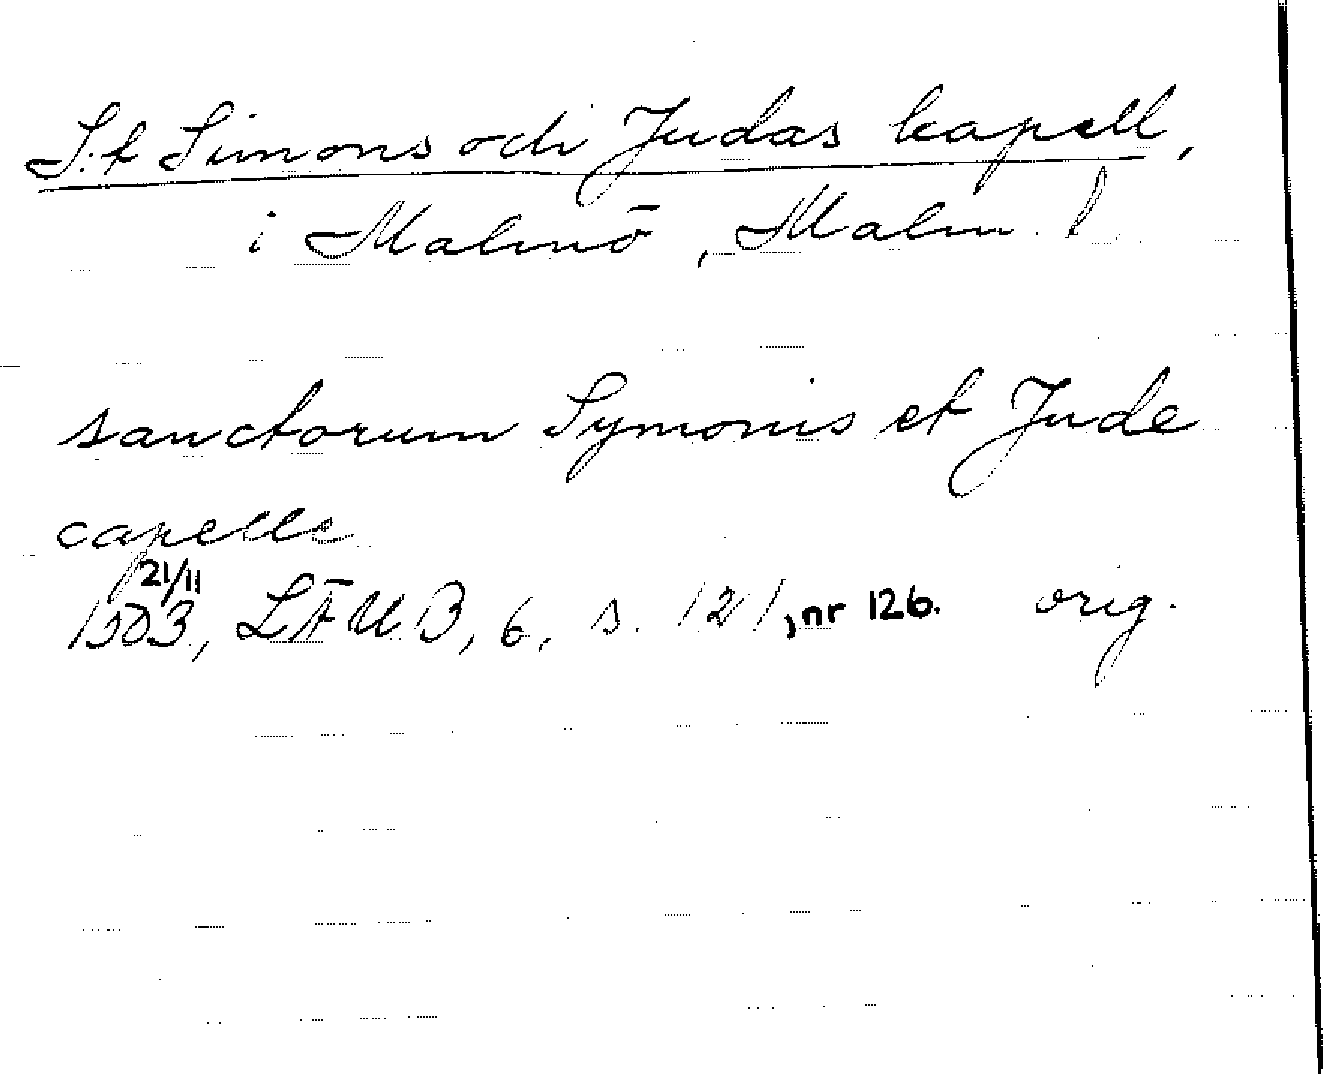 S:t Simons och Judas kapell,
i Malmö, Malm. l
sanctorum Symonis et Jude
capelle
21/11
1503, LÄUB, 6, s. 121, nr 126. orig.